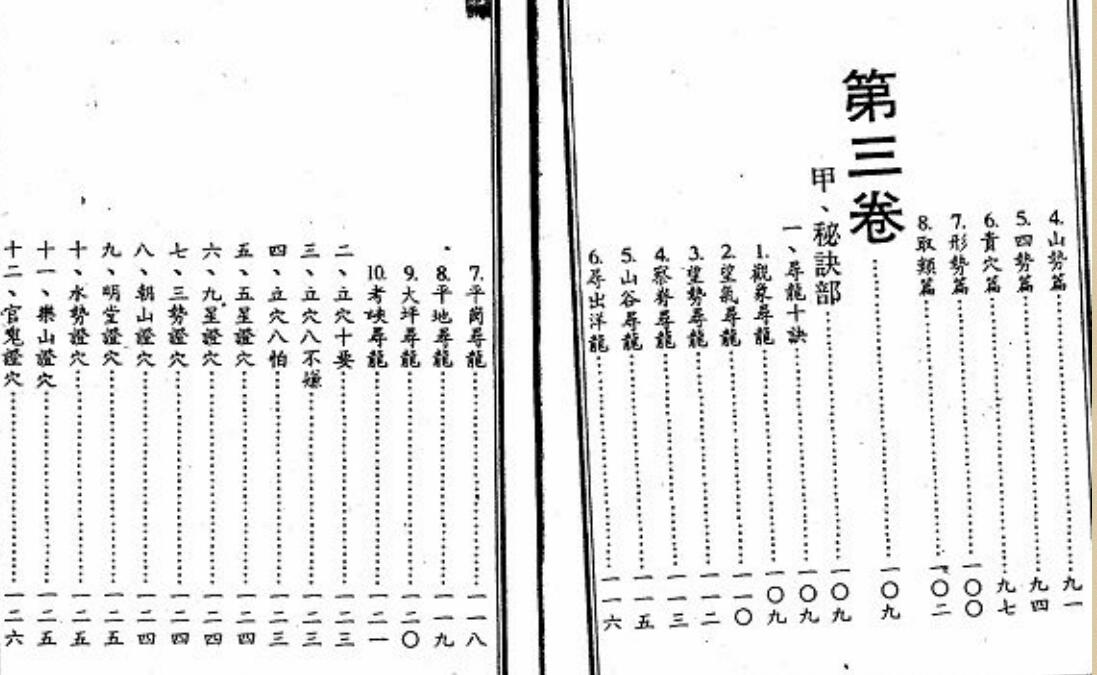 4.山勢篇……九一
5.四勢篇……九四
6.貴穴篇……九七
7.形勢篇……一〇〇
8.取類篇……一〇二
第三卷……一〇九
甲、秘訣部……一〇九
一、尋龍十訣……一〇九
1.觀象尋龍……一〇九
2.望氣尋龍……一一〇
3.望勢尋龍……一一二
4.察脊尋龍……一一三
5.山谷尋龍……一一五
6.尋出洋龍……一一六
7.平崗尋龍……一一八
8.平地尋龍……一一九
9.大坪尋龍……一二〇
10.考峽尋龍……一二一
二、立穴十要……一二三
三、立穴八不嫌……一二三
四、立穴八怕……一二三
五、五星證穴……一二四
六、九星證穴……一二四
七、三勢證穴……一二四
八、朝山證穴……一二四
九、明堂證穴……一二五
十、水勢證穴……一二五
十一、樂山證穴……一二五
十二、官鬼證穴……一二六